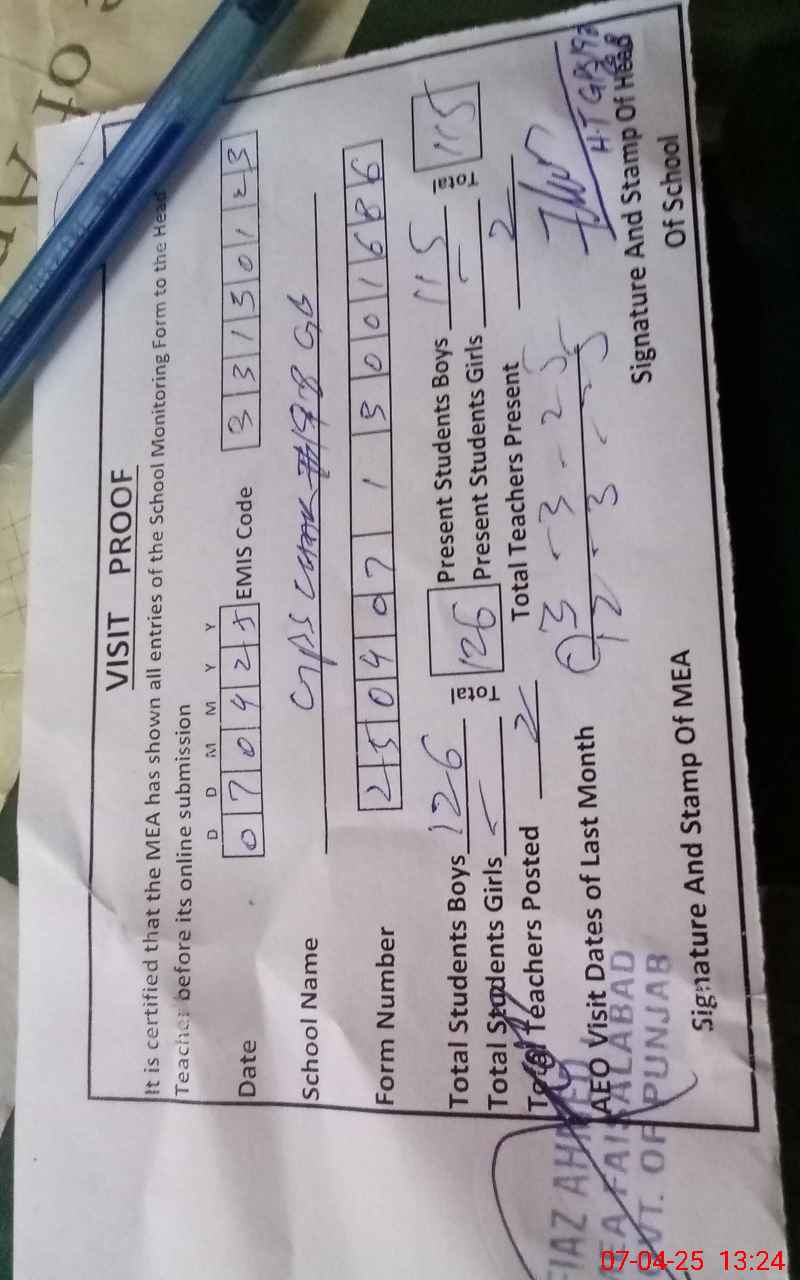 VISIT PROOF
It is certified that the MEA has shown all entries of the School Monitoring Form to the Head
Teacher before its online submission
D D M M Y Y
Date 070425 EMIS Code 33130123
School Name GPS CHAK GB
Form Number 25040713001686
Total Students Boys 126 Total 126 Present Students Boys 115 Total 115
Total Students Girls - Present Students Girls -
Total Teachers Posted 2 Total Teachers Present 2
AEO Visit Dates of Last Month 3-3-25
12-3-25
FIAZ AHMED
MEA FAISALABAD
GOVT. OF PUNJAB
H.T GPS
Signature And Stamp Of MEA
Signature And Stamp Of Head
Of School
07-04-25 13:24